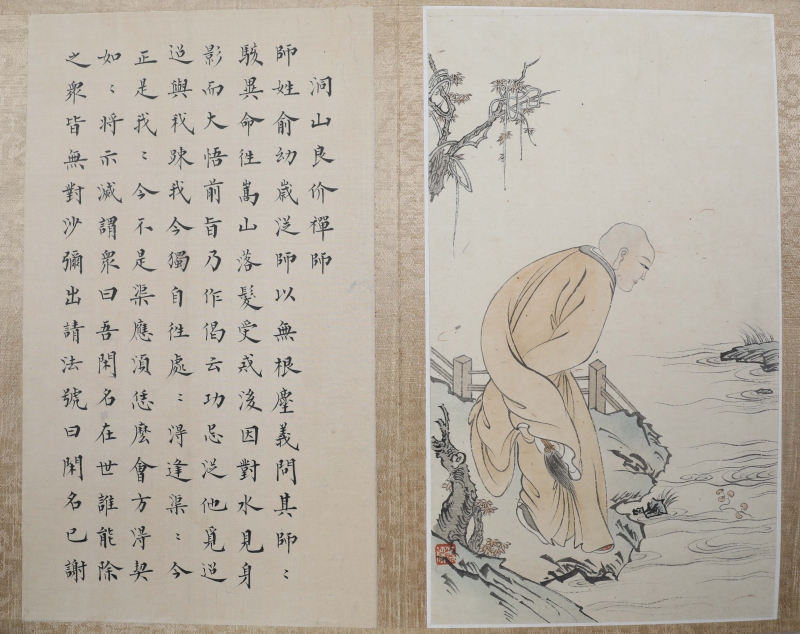 洞山良价禪師
師姓俞幼歲従師以無根塵義問其師〻
駭異命徃嵩山落髮受戒後因對水見身
影而大悟前旨乃作偈云功忌従他覓迢
迢與我踈我今獨自徃處〻淂逢渠〻今
正是我〻今不是渠應湏恁麼會方淂契
如〻將示滅謂衆曰吾閑名在世誰能除
之衆皆無對沙彌出請法號曰閑名已謝